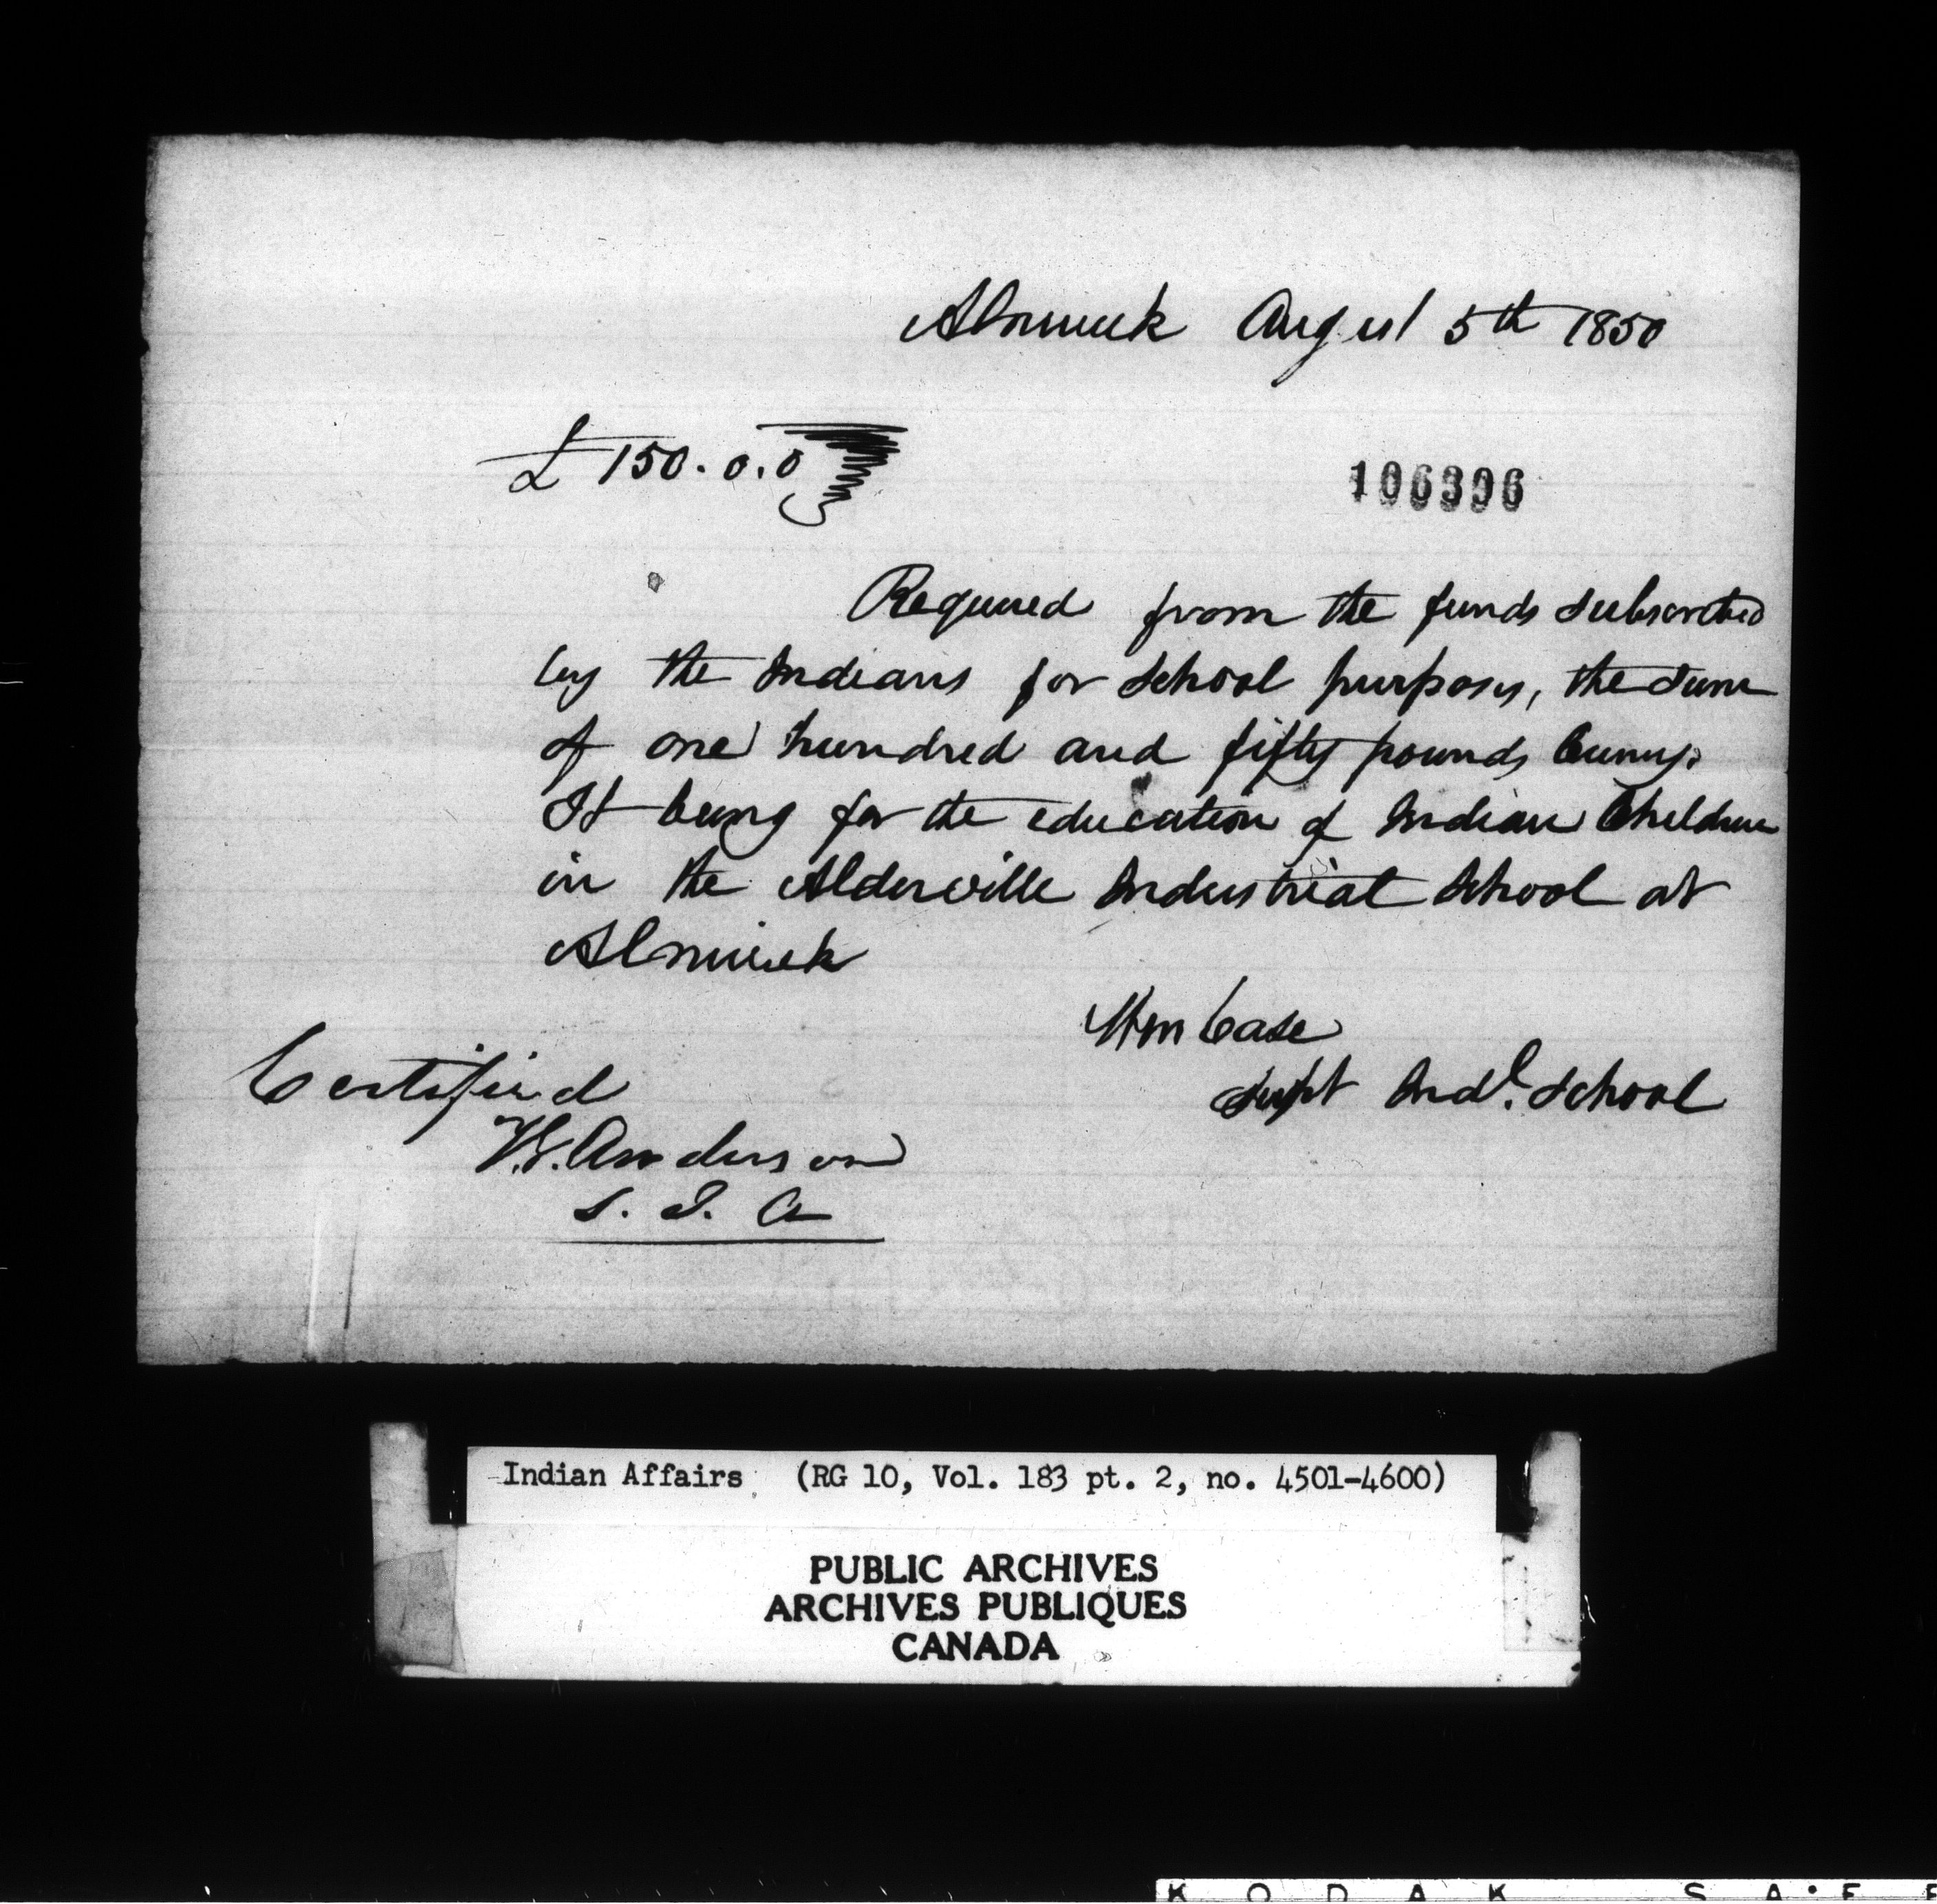 Alnwick August 5th 1850
£150.0.0
106396
Required from the funds subscribed
by the Indians for School purposes, the sum
of one hundred and fifty pounds Curncy.
It being for the education of Indian Children
in the Alderville Industrial School at
Alnwick
Wm Case
Supt Indl. School
Certified
Anderson
S. I. A
Indian Affairs (RG 10, Vol. 183 pt. 2, no. 4501-4600)
PUBLIC ARCHIVES
ARCHIVES PUBLIQUES
CANADA
KODAK SAFE